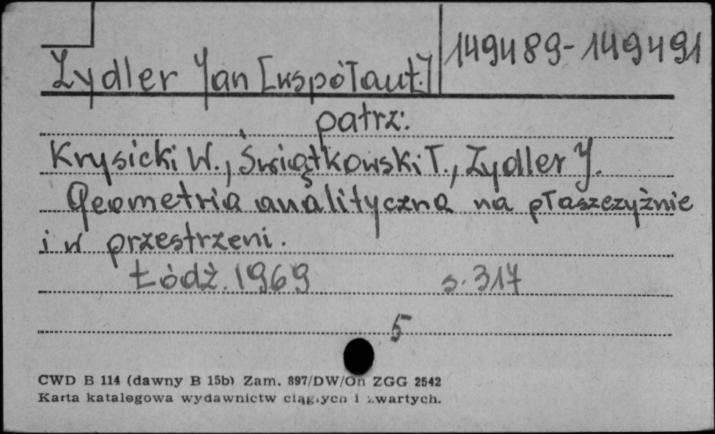 149489-149491
Zydler Jan [współaut.]
patrz:
Krysicki W., Świątkowski T., Zydler J.
Geometria analityczna na płaszczyźnie
i w przestrzeni.
Łódź. 1969 s. 317
5
CWD B 114 (dawny B 15b) Zam. 897/DW/On ZGG 2542
Karta katalogowa wydawnictw ciągłych i zwartych.